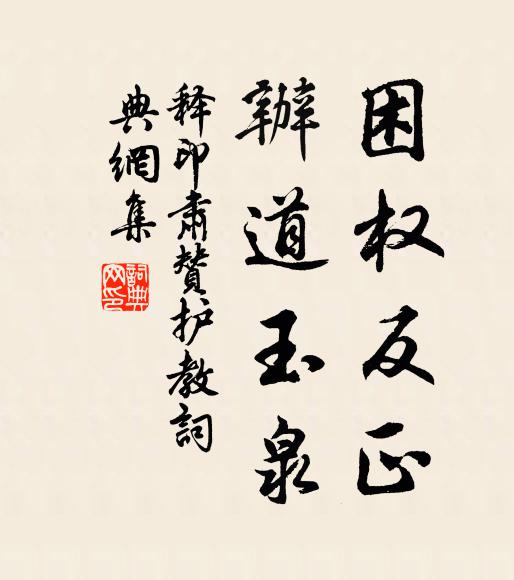 困权反正
辦道玉泉
释印肃賛护教詞
典網集
詞典
网印